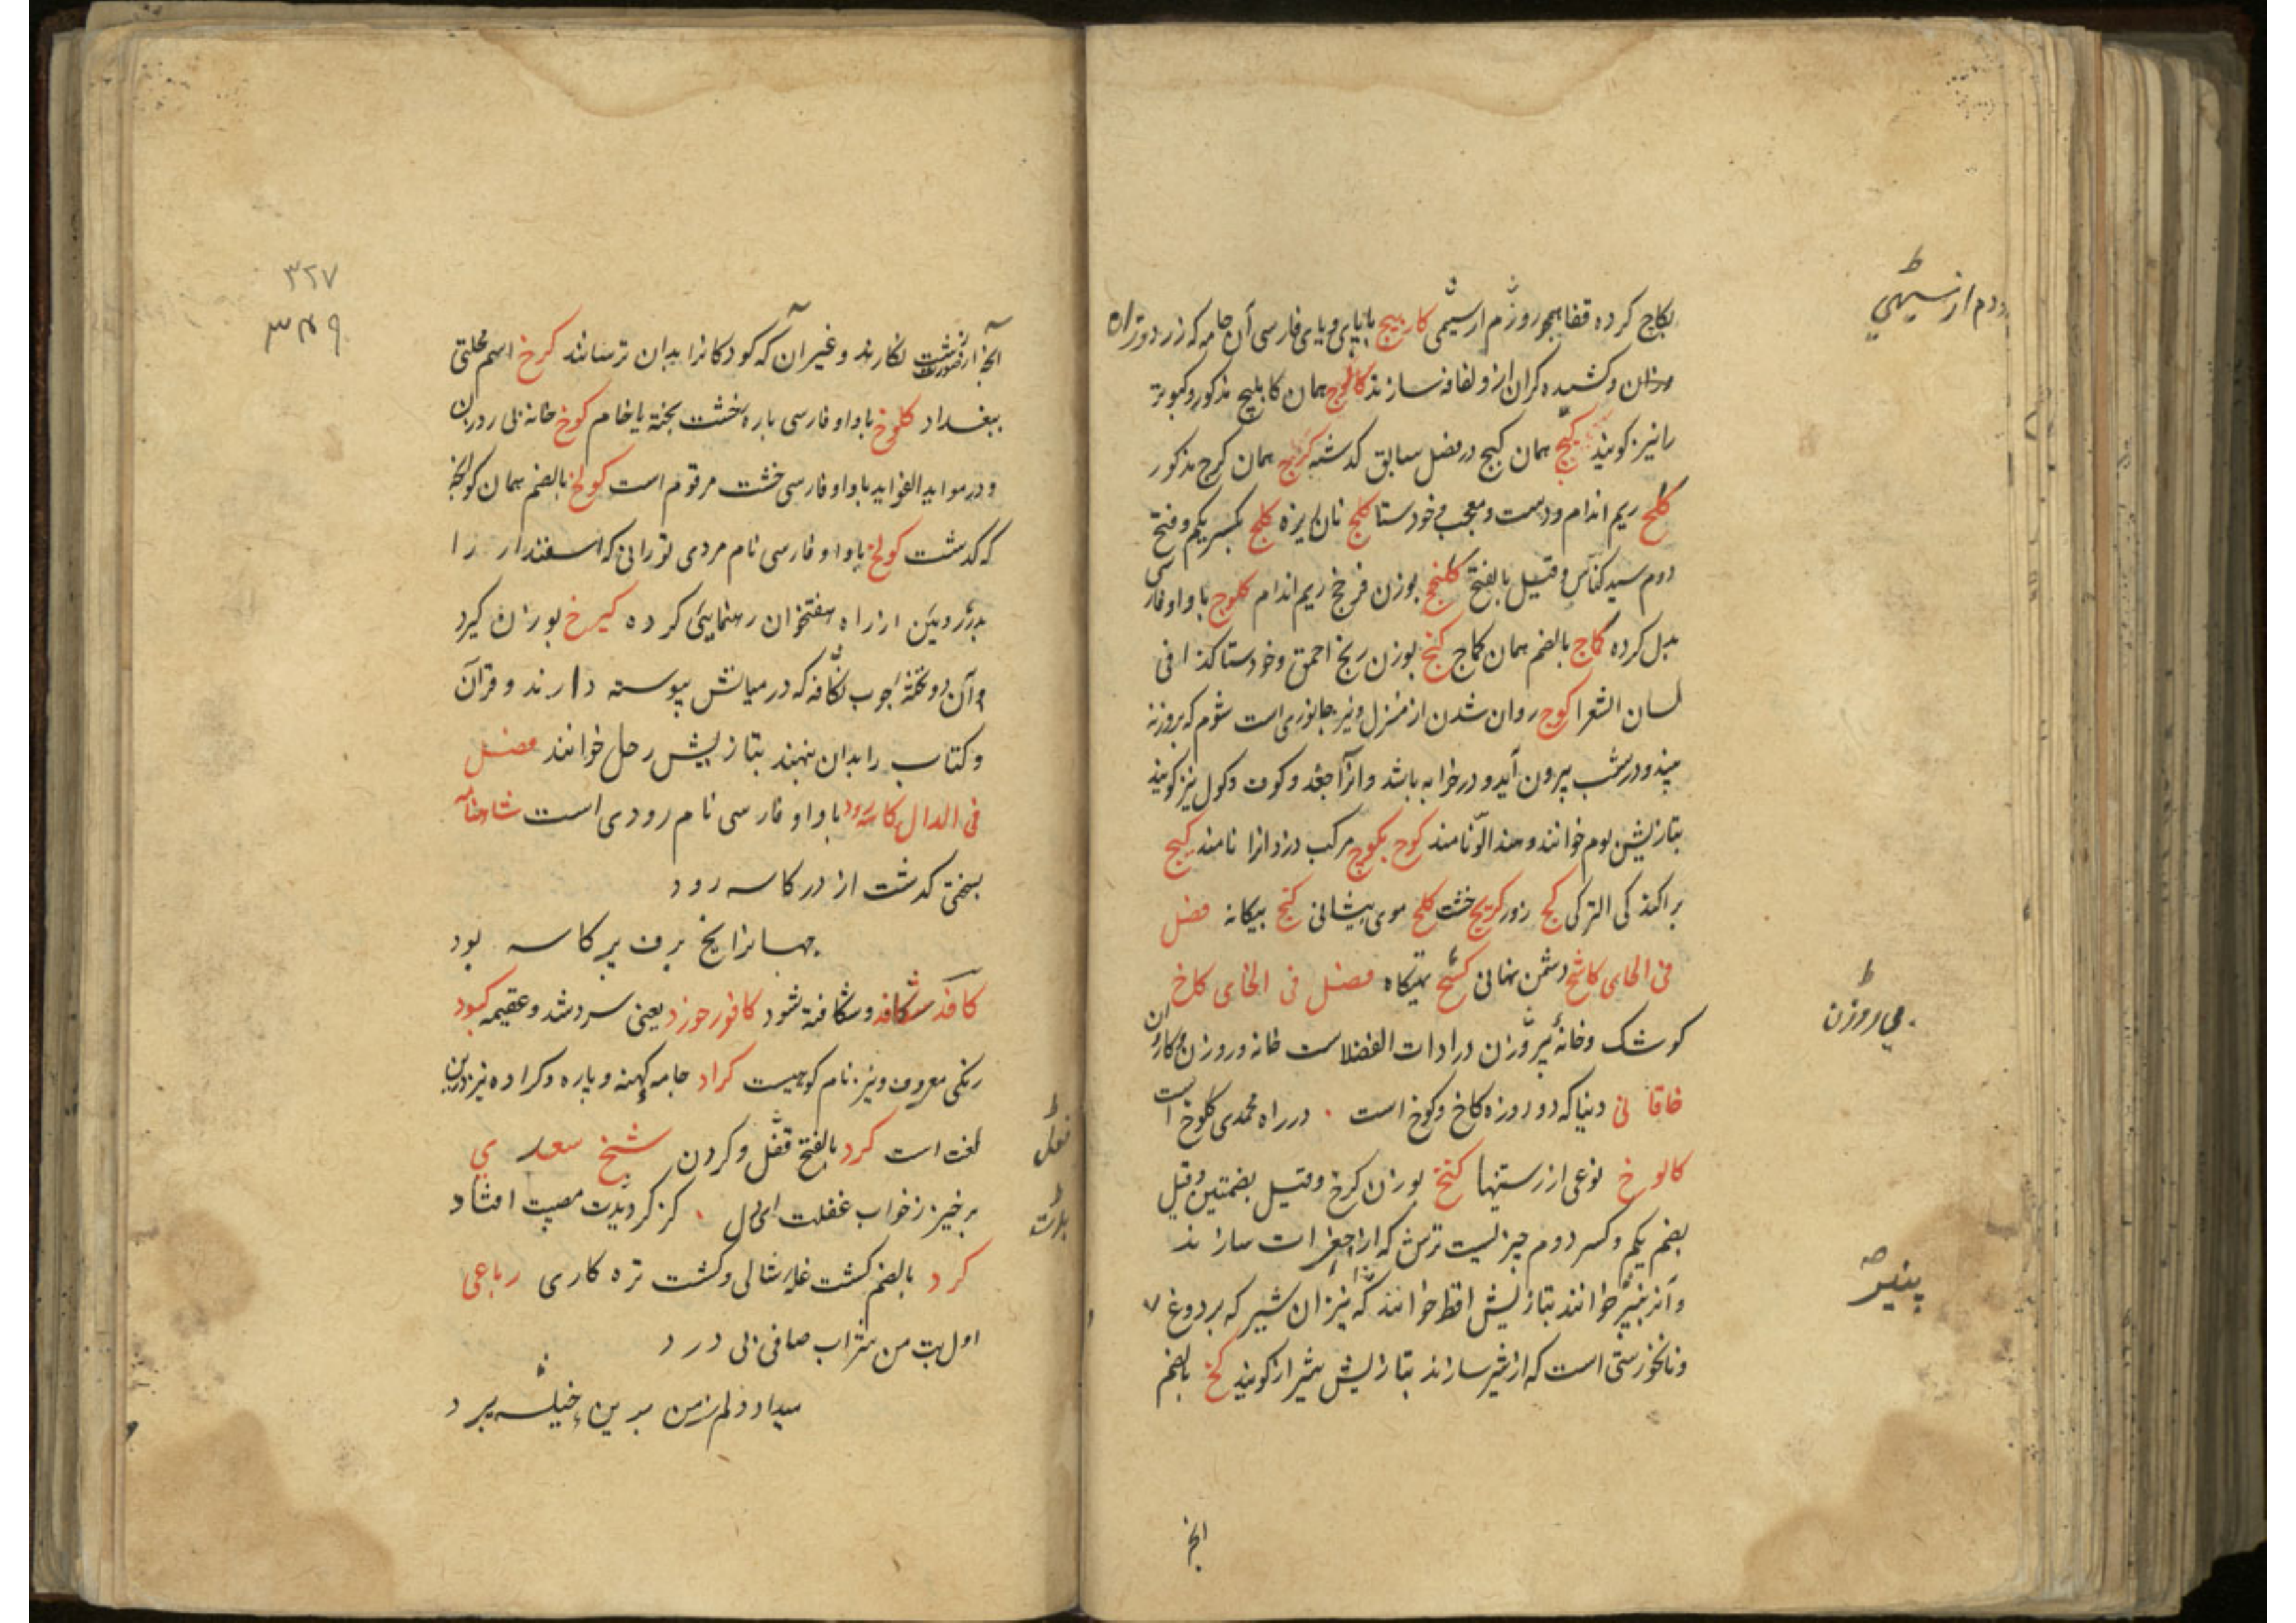 بکاج کرده قفا همچو روزم ار سیهی کارپیچ با بای و یای فارسی آن جامه که زردوزان
وزان و کشیده گران ازو لفافه سازند کالوج همان کابلیج مذکور و کبوتر
را نیز کویند کیج همان کیج در فصل سابق کدشته کریج همان کرج مذکور
کلج ریم اندام و دست و معجب و خودستا کلج نان ریزه کلج بکسر یکم و فتح
دوم سبد کناس و قیل بالفتح کلنج بوزن فرنج ریم اندام کلوج با واو فارسی
بدل کرده کماج بالضم همان کماج کنج بوزن رنج احمق و خودستا کذا فی
لسان الشعرا کوچ روان شدن از منزل و نیز جانوری است شوم که بروز نه
بیند و در شب بیرون آید و در خرابه باشد و انرا جغد و کوف و کول نیز کویند
بتازیش بوم خوانند و هند الّو نامند کوچ بکوچ مرکب دزد انرا نامند کیج
براکند کی الترکی کج زور کریج خشت کلج موی پیشانی کنج بیکانه فصل
فی الحای کاشح دشمن نهانی کشح تهیکاه فصل فی الخای کاخ
کوشک و خانهٔ بی روزن در ادات الفضلاست خانه و روزن و کاروان
خاقانی دنیا که دو روزه کاخ و کوخ است در راه محمدی کلوخ است
کالوخ نوعی از رستنیها کنخ بوزن کرخ و قیل بضمتین و قیل
بضم یکم و کسر دوم چیزیست ترش که از جغرات سازند
و انرا پنیر خوانند بتازیش اقط خوانند که نیز ان شیر که بر دوغ
و نانخورستی است که از شیر سازند بتازیش شیراز کویند کخ بالضم
انج
دوم ار سیهی
بی روزن
پنیر
۳۲۷
۳۴۹
انجه از صورت زشت نکارند و غیر آن که کودکانرا بدان ترسانند کرخ اسم محلتی
ببغداد کلوخ با واو فارسی پاره خشت پخته یا خام کوخ خانه بی روزن
و در مواید الفواید با واو فارسی خشت مرقوم است کولخ بالضم همان کولخ
که کدشت کولخ با واو فارسی نام مردی تورانی که اسفندار را
بدژ رویین از راه هفتخوان رهنمایی کرده کیرخ بوزن کیرد
و آن دو تختهٔ چوب شکافه که در میانش پیوسته دارند و قرآن
و کتاب را بدان نهند بتازیش رحل خوانند فصل
فی الدال کاسه رود با واو فارسی نام رودی است شاهنامه
بسختی کدشت از در کاسه رود
جهانرا یخ برف پر کاسه بود
کافد شکافد و شکافته شود کافور خورد یعنی سرد شد و عقیمه کبود
رنکی معروف و نیز نام کوهیست کراد جامه کهنه و پاره و کراده نیز درین
لغت است کرد بالفتح فعل و کردن شیخ سعدی
برخیز ز خواب غفلت ای دل کز کردیدت مصیبت افتاد
کرد بالضم کشت غله شالی و کشت تره کاری رباعی
اول بت من شراب صافی بی درد
میداد دلم ز من بدین حیله ببرد
فعل